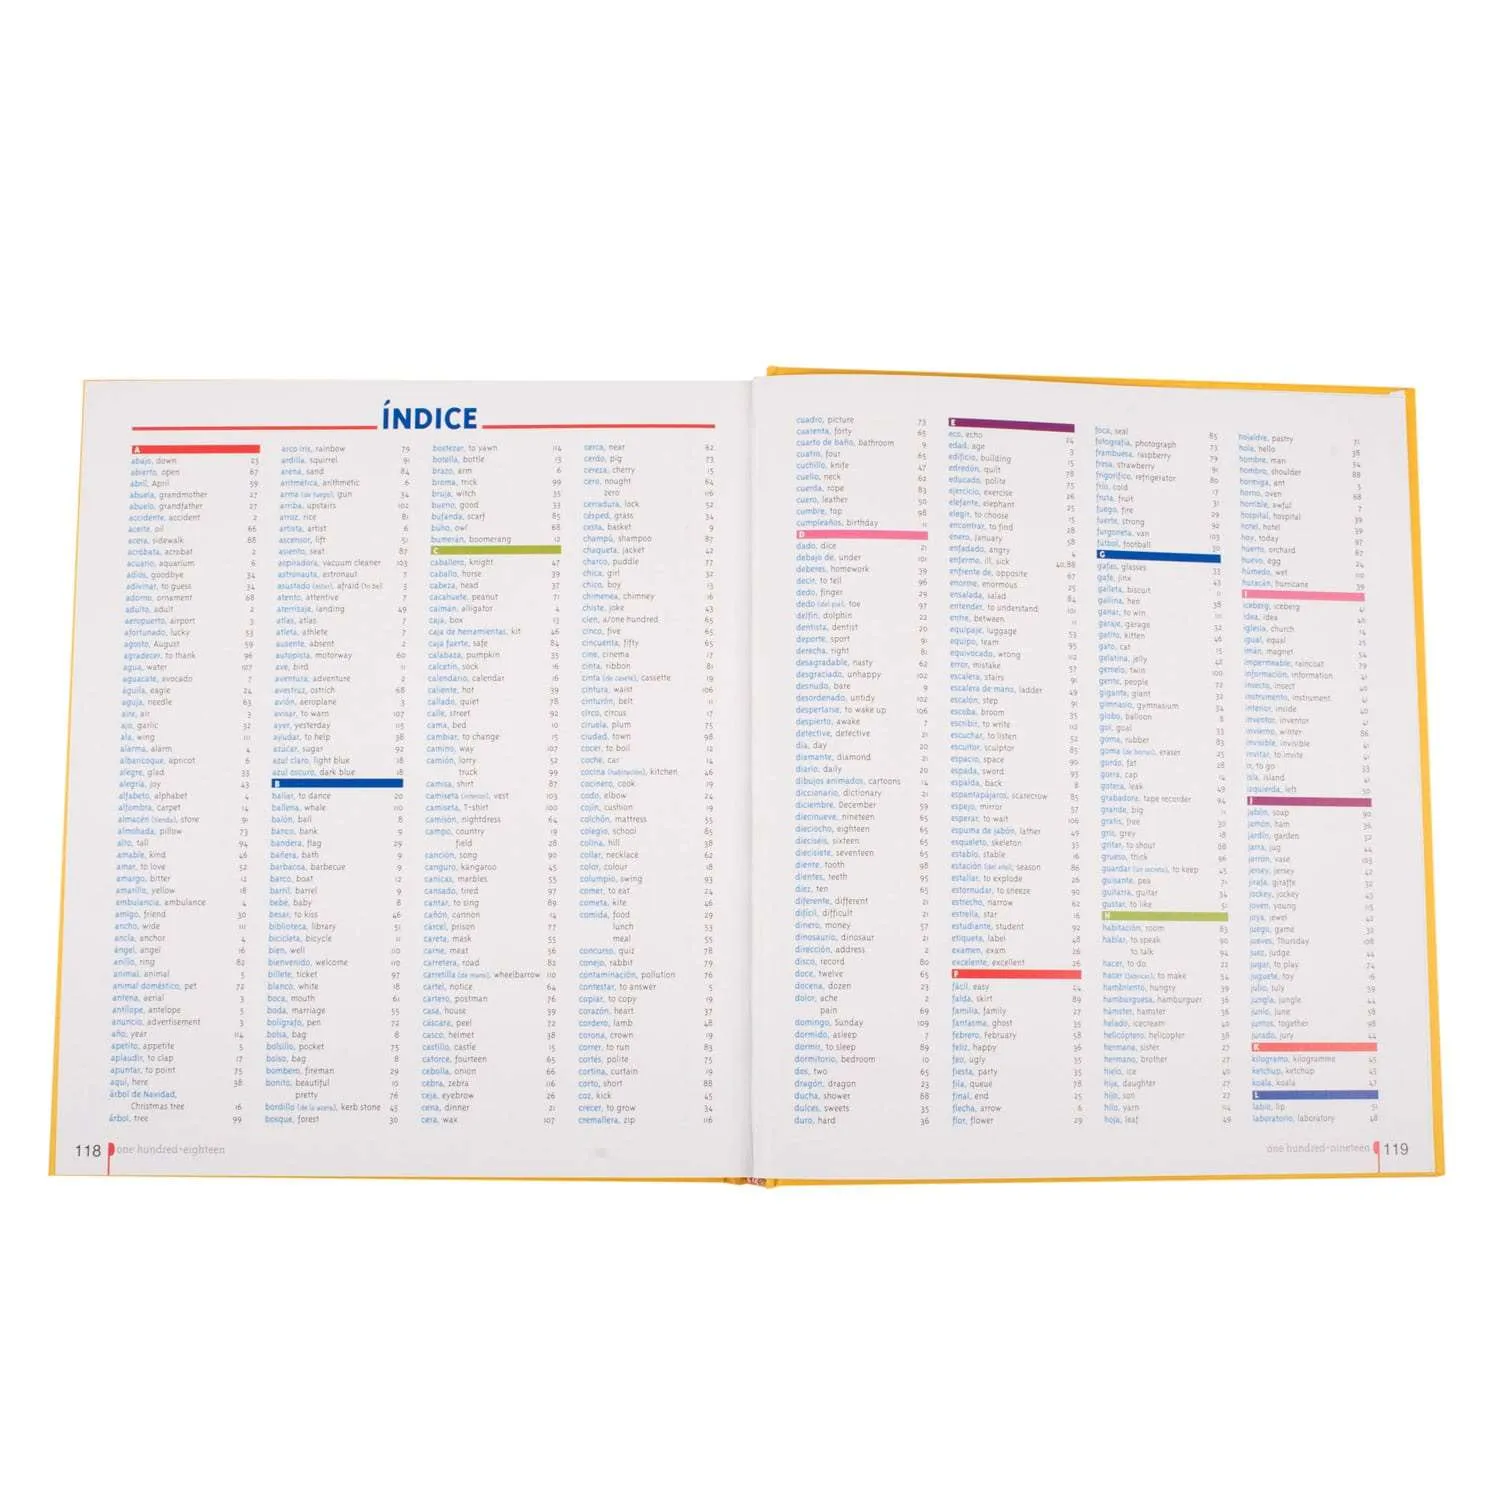 ÍNDICE
A
abajo, down 23
abierto, open 67
abril, April 59
abuela, grandmother 27
abuelo, grandfather 27
accidente, accident 2
aceite, oil 66
acera, sidewalk 88
acróbata, acrobat 2
acuario, aquarium 6
adiós, goodbye 34
adivinar, to guess 34
adorno, ornament 68
adulto, adult 2
aeropuerto, airport 3
afortunado, lucky 53
agosto, August 59
agradecer, to thank 96
agua, water 107
aguacate, avocado 7
águila, eagle 24
aguja, needle 63
aire, air 3
ajo, garlic 32
ala, wing 111
alarma, alarm 4
albaricoque, apricot 6
alegre, glad 33
alegría, joy 43
alfabeto, alphabet 4
alfombra, carpet 14
almacén (tienda), store 91
almohada, pillow 73
alto, tall 94
amable, kind 46
amar, to love 52
amargo, bitter 12
amarillo, yellow 18
ambulancia, ambulance 4
amigo, friend 30
ancho, wide 111
ancla, anchor 4
ángel, angel 16
anillo, ring 82
animal, animal 5
animal doméstico, pet 72
antena, aerial 3
antílope, antelope 5
anuncio, advertisement 3
año, year 114
apetito, appetite 5
aplaudir, to clap 17
apuntar, to point 75
aquí, here 38
árbol de Navidad,
Christmas tree 16
árbol, tree 99
arco iris, rainbow 79
ardilla, squirrel 91
arena, sand 84
aritmética, arithmetic 6
arma (de fuego), gun 34
arriba, upstairs 102
arroz, rice 81
artista, artist 6
ascensor, lift 51
asiento, seat 87
aspiradora, vacuum cleaner 103
astronauta, astronaut 7
asustado (estar), afraid (to be) 3
atento, attentive 7
aterrizaje, landing 49
atlas, atlas 7
atleta, athlete 7
ausente, absent 2
autopista, motorway 60
ave, bird 11
aventura, adventure 2
avestruz, ostrich 68
avión, aeroplane 3
avisar, to warn 107
ayer, yesterday 115
ayudar, to help 38
azúcar, sugar 92
azul claro, light blue 18
azul oscuro, dark blue 18
B
bailar, to dance 20
ballena, whale 110
balón, ball 8
banco, bank 9
bandera, flag 29
bañera, bath 9
barbacoa, barbecue 9
barco, boat 12
barril, barrel 9
bebé, baby 8
besar, to kiss 46
biblioteca, library 51
bicicleta, bicycle 11
bien, well 110
bienvenido, welcome 110
billete, ticket 97
blanco, white 18
boca, mouth 61
boda, marriage 55
bolígrafo, pen 72
bolsa, bag 8
bolsillo, pocket 75
bolso, bag 8
bombero, fireman 29
bonito, beautiful 10
pretty 76
bordillo (de la acera), kerb stone 45
bosque, forest 30
bostezar, to yawn 114
botella, bottle 13
brazo, arm 6
broma, trick 99
bruja, witch 35
bueno, good 33
bufanda, scarf 85
búho, owl 68
bumerán, boomerang 12
C
caballero, knight 47
caballo, horse 39
cabeza, head 37
cacahuete, peanut 71
caimán, alligator 4
caja, box 13
caja de herramientas, kit 46
caja fuerte, safe 84
calabaza, pumpkin 33
calcetín, sock 16
calendario, calendar 16
caliente, hot 39
callado, quiet 78
calle, street 92
cama, bed 10
cambiar, to change 15
camino, way 107
camión, lorry 52
truck 99
camisa, shirt 87
camiseta (interior), vest 103
camiseta, T-shirt 100
camisón, nightdress 64
campo, country 19
field 28
canción, song 90
canguro, kangaroo 45
canicas, marbles 55
cansado, tired 97
cantar, to sing 89
cañón, cannon 14
cárcel, prison 77
careta, mask 55
carne, meat 56
carretera, road 82
carretilla (de mano), wheelbarrow 110
cartel, notice 64
cartero, postman 76
casa, house 39
cáscara, peel 72
casco, helmet 38
castillo, castle 15
catorce, fourteen 65
cebolla, onion 66
cebra, zebra 116
ceja, eyebrow 26
cena, dinner 21
cera, wax 107
cerca, near 62
cerdo, pig 73
cereza, cherry 15
cero, nought 64
zero 116
cerradura, lock 52
césped, grass 34
cesta, basket 9
champú, shampoo 87
chaqueta, jacket 42
charco, puddle 77
chica, girl 32
chico, boy 13
chimenea, chimney 16
chiste, joke 43
cien, a/one hundred 65
cinco, five 65
cincuenta, fifty 65
cine, cinema 17
cinta, ribbon 81
cinta (de casete), cassette 19
cintura, waist 106
cinturón, belt 11
circo, circus 17
ciruela, plum 75
ciudad, town 98
cocer, to boil 12
coche, car 14
cocina (habitación), kitchen 46
cocinero, cook 19
codo, elbow 24
cojín, cushion 19
colchón, mattress 55
colegio, school 85
colina, hill 38
collar, necklace 62
color, colour 18
columpio, swing 93
comer, to eat 24
cometa, kite 46
comida, food 29
lunch 53
meal 55
concurso, quiz 78
conejo, rabbit 79
contaminación, pollution 76
contestar, to answer 5
copiar, to copy 19
corazón, heart 37
cordero, lamb 48
corona, crown 19
correr, to run 83
cortés, polite 75
cortina, curtain 19
corto, short 88
coz, kick 45
crecer, to grow 34
cremallera, zip 116
118 one hundred-eighteen
cuadro, picture 73
cuarenta, forty 65
cuarto de baño, bathroom 9
cuatro, four 65
cuchillo, knife 47
cuello, neck 62
cuerda, rope 83
cuero, leather 50
cumbre, top 98
cumpleaños, birthday 11
D
dado, dice 21
debajo de, under 101
deberes, homework 39
decir, to tell 96
dedo, finger 29
dedo (del pie), toe 97
delfín, dolphin 22
dentista, dentist 20
deporte, sport 91
derecha, right 81
desagradable, nasty 62
desgraciado, unhappy 102
desnudo, bare 9
desordenado, untidy 102
despertarse, to wake up 106
despierto, awake 7
detective, detective 21
día, day 20
diamante, diamond 21
diario, daily 20
dibujos animados, cartoons 14
diccionario, dictionary 21
diciembre, December 59
diecinueve, nineteen 65
dieciocho, eighteen 65
dieciséis, sixteen 65
diecisiete, seventeen 65
diente, tooth 98
dientes, teeth 95
diez, ten 65
diferente, different 21
difícil, difficult 21
dinero, money 57
dinosaurio, dinosaur 21
dirección, address 2
disco, record 80
doce, twelve 65
docena, dozen 23
dolor, ache 2
pain 69
domingo, Sunday 109
dormido, asleep 7
dormir, to sleep 89
dormitorio, bedroom 10
dos, two 65
dragón, dragon 23
ducha, shower 88
dulces, sweets 35
duro, hard 36
E
eco, echo 24
edad, age 3
edificio, building 15
edredón, quilt 78
educado, polite 75
ejercicio, exercise 26
elefante, elephant 25
elegir, to choose 15
encontrar, to find 28
enero, January 58
enfadado, angry 4
enfermo, ill, sick 40;88
enfrente de, opposite 67
enorme, enormous 25
ensalada, salad 84
entender, to understand 101
entre, between 11
equipaje, luggage 53
equipo, team 95
equivocado, wrong 112
error, mistake 57
escalera, stairs 91
escalera de mano, ladder 49
escalón, step 91
escoba, broom 35
escribir, to write 112
escuchar, to listen 52
escultor, sculptor 85
espacio, space 90
espada, sword 93
espalda, back 8
espantapájaros, scarecrow 85
espejo, mirror 57
esperar, to wait 106
espuma de jabón, lather 49
esqueleto, skeleton 35
establo, stable 16
estación (del año), season 86
estallar, to explode 26
estornudar, to sneeze 90
estrecho, narrow 62
estrella, star 16
estudiante, student 92
etiqueta, label 48
examen, exam 26
excelente, excellent 26
F
fácil, easy 24
falda, skirt 89
familia, family 27
fantasma, ghost 35
febrero, February 58
feliz, happy 36
feo, ugly 35
fiesta, party 35
fila, queue 78
final, end 25
flecha, arrow 6
flor, flower 29
foca, seal 85
fotografía, photograph 73
frambuesa, raspberry 79
fresa, strawberry 91
frigorífico, refrigerator 80
frío, cold 17
fruta, fruit 31
fuego, fire 29
fuerte, strong 92
furgoneta, van 103
fútbol, football 30
G
gafas, glasses 33
gafe, jinx 43
galleta, biscuit 11
gallina, hen 38
ganar, to win 111
garaje, garage 32
gatito, kitten 46
gato, cat 15
gelatina, jelly 42
gemelo, twin 100
gente, people 72
gigante, giant 32
gimnasio, gymnasium 34
globo, balloon 8
gol, goal 33
goma, rubber 83
goma (de borrar), eraser 25
gordo, fat 28
gorra, cap 14
gotera, leak 49
grabadora, tape recorder 94
grande, big 11
gratis, free 30
gris, grey 18
gritar, to shout 88
grueso, thick 96
guardar (un secreto), to keep 45
guisante, pea 71
guitarra, guitar 34
gustar, to like 51
H
habitación, room 83
hablar, to speak 90
to talk 94
hacer, to do 22
hacer (fabricar), to make 54
hambriento, hungry 39
hamburguesa, hamburguer 36
hámster, hamster 36
helado, icecream 40
helicóptero, helicopter 38
hermana, sister 27
hermano, brother 27
hielo, ice 40
hija, daughter 27
hijo, son 27
hilo, yarn 114
hoja, leaf 49
hojaldre, pastry 71
hola, hello 38
hombre, man 54
hombro, shoulder 88
hormiga, ant 5
horno, oven 68
horrible, awful 7
hospital, hospital 39
hotel, hotel 39
hoy, today 97
huerto, orchard 67
huevo, egg 24
húmedo, wet 110
huracán, hurricane 39
I
iceberg, iceberg 41
idea, idea 40
iglesia, church 14
igual, equal 25
imán, magnet 54
impermeable, raincoat 79
información, information 41
insecto, insect 40
instrumento, instrument 41
interior, inside 40
inventor, inventor 41
invierno, winter 86
invisible, invisible 41
invitar, to invite 41
ir, to go 33
isla, island 41
izquierda, left 50
J
jabón, soap 90
jamón, ham 36
jardín, garden 32
jarra, jug 44
jarrón, vase 103
jersey, jersey 42
jirafa, giraffe 32
jockey, jockey 43
joven, young 115
joya, jewel 42
juego, game 32
jueves, Thursday 108
juez, judge 44
jugar, to play 74
juguete, toy 16
julio, July 59
jungla, jungle 44
junio, June 58
juntos, together 98
jurado, jury 44
K
kilogramo, kilogramme 45
ketchup, ketchup 45
koala, koala 47
L
labio, lip 51
laboratorio, laboratory 48
one hundred-nineteen 119